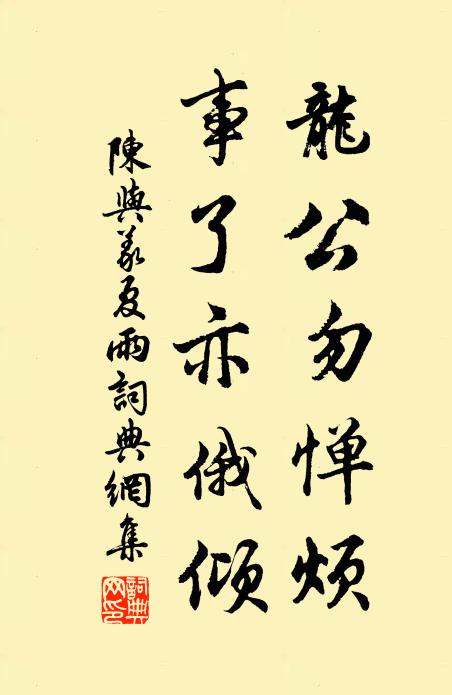 龍公勿惮煩
事了亦俄傾
陳與義夏雨詞典網集
詞典网印